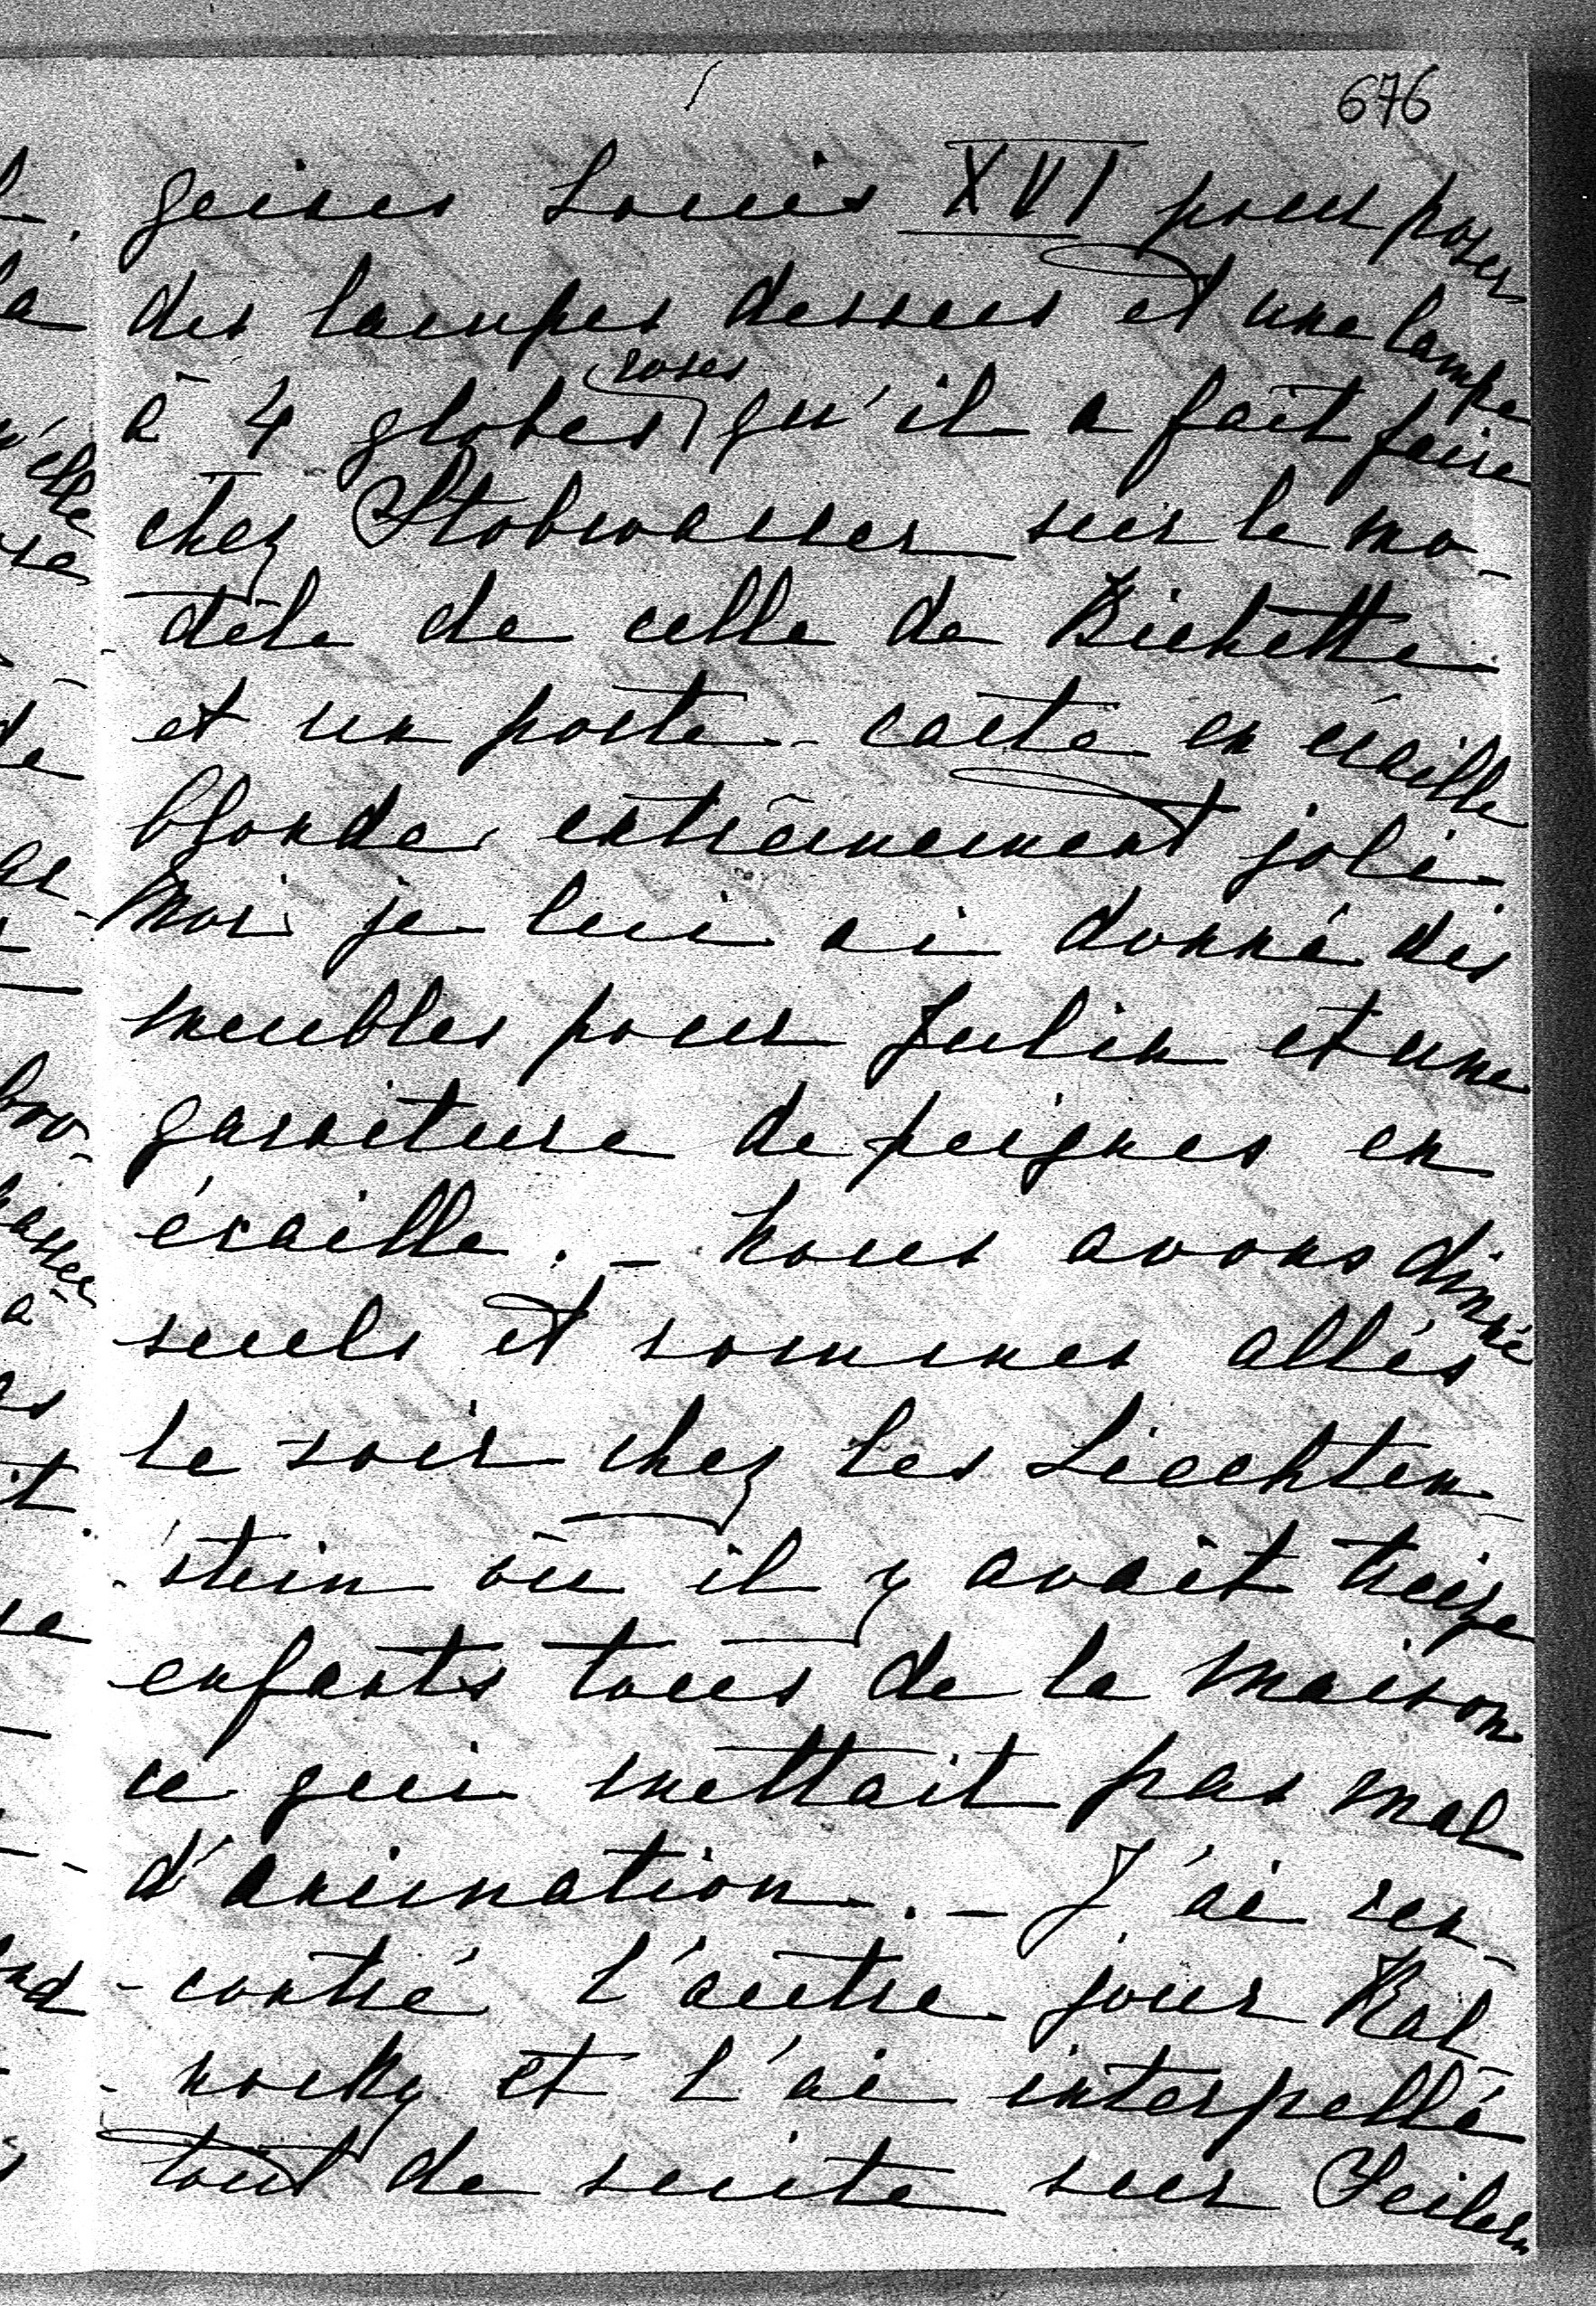 676
geires Louis XVI pour poser
des lampes dessus et une lampe
à 4 globes roses qu'il a fait faire
chez Stobwasser sur le mo-
-dèle de celle de Bichette
et un porte-carte en écaille
blonde, extrêmement joli.
Moi je lui ai donné des
meubles pour Julin et une
garniture de peignes en
écaille. - Nous avons dîné
seuls et sommes allés
le soir chez les Liechten-
-stein où il y avait treize
enfants tous de la maison
ce qui mettait pas mal
d'animation. - J'ai ren-
-contré l'autre jour Kal-
-nocky et l'ai interpellé
tout de suite sur Seilern